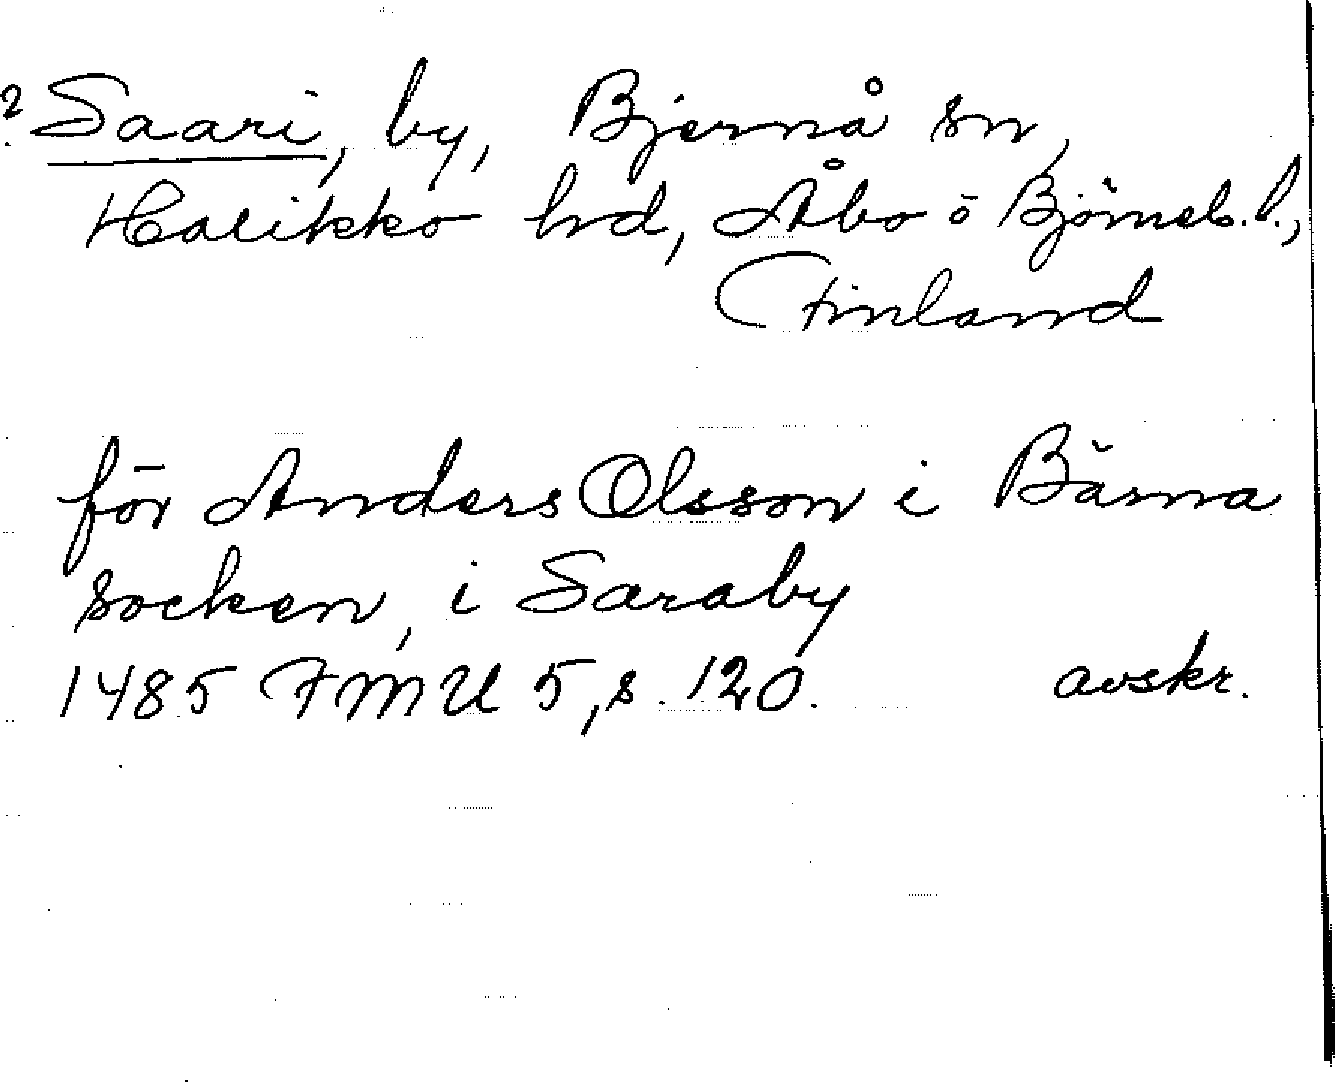 ? Saari, by, Bjernå sn,
Halikko hd, Åbo o Björneb. l.,
Finland
för Anders Olsson i Bärna
socken, i Saraby
1485 FMU 5, s. 120. avskr.